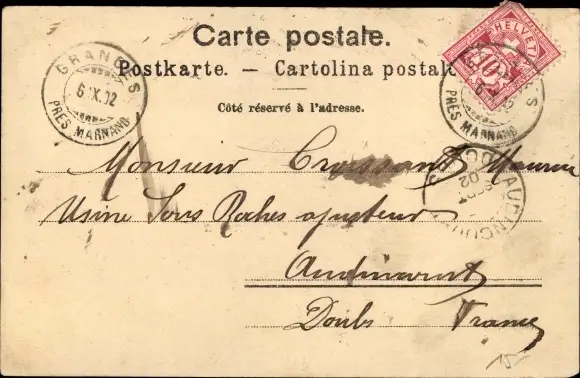 Carte postale.
Postkarte. — Cartolina postale
Côté réservé à l'adresse.
HELVETIA
10
GRANGES
6.IX.02
PRÈS MARNAND
GRANGES
PRÈS MARNAND
AUDINCOURT
SEPT
02
DOUBS
Monsieur Croissant Maurice
Usine Sous Roches ajusteur
Audincourt
Doubs France
15